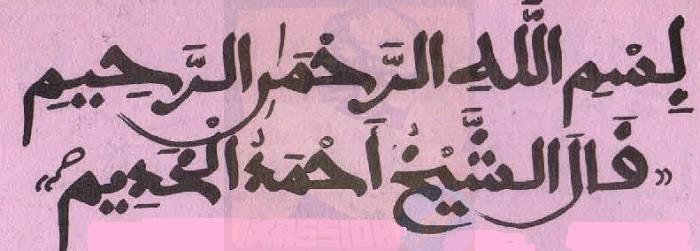 بِسْمِ اللَّهِ الرَّحْمَٰنِ الرَّحِيمِ
« قَالَ الشَّيْخُ أَحْمَدُ الْخَدِيمُ »